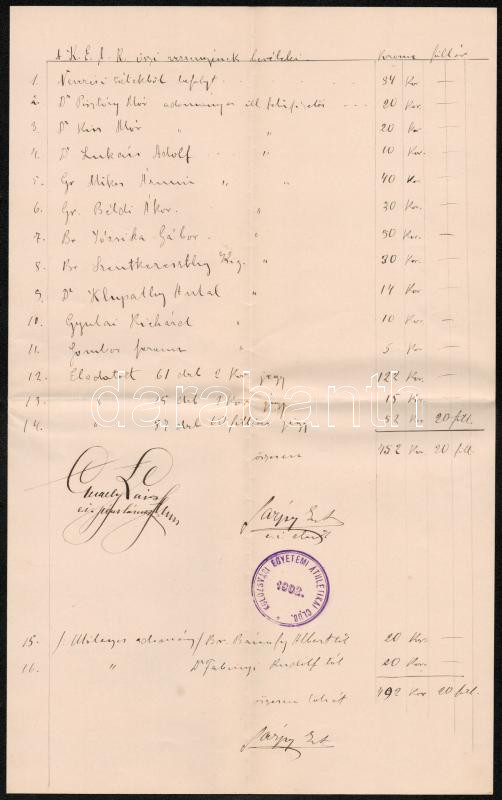 A K.E.A.K. őszi versenyének bevételei. Korona fillér
1. Nevezési díjakból befolyt 34 Kor —
2. Dr Mór adományos ill. felülfizetés 20 Kor. —
3. Dr Kiss Mór " " 20 Kor —
4. Dr Lukács Adolf " 10 Kor. —
5. Gr. Mikes Ármin " " 40 Kor —
6. Gr. Béldi Ákos. " 30 Kor. —
7. Br. Jósika Gábor. " 50 Kor. —
8. Br. Szentkereszthy Zsig. " 30 Kor. —
9. Dr Klupathy Antal " 14 Kor —
10. Gyulai Richárd " 10 Kor. —
11. Gombos Ferenc " 5 Kor —
12. Eladatott 61 drb 2 Kor jegy 122 Kor. —
13. " 15 drb 1 Kor jegy 15 Kor. —
14. " 87 drb 60 filléres jegy 52 Kor 20 fill.
összesen 452 Kor 20 fill.
KOLOZSVÁRI EGYETEMI ATHLETIKAI CLUB.
1902.
15. adomány Br. Bánffy Alberttól 20 Kor —
16. " Dr Fabinyi Rudolftól 20 Kor. —
összesen tehát 492 Kor 20 fill.
darabanth